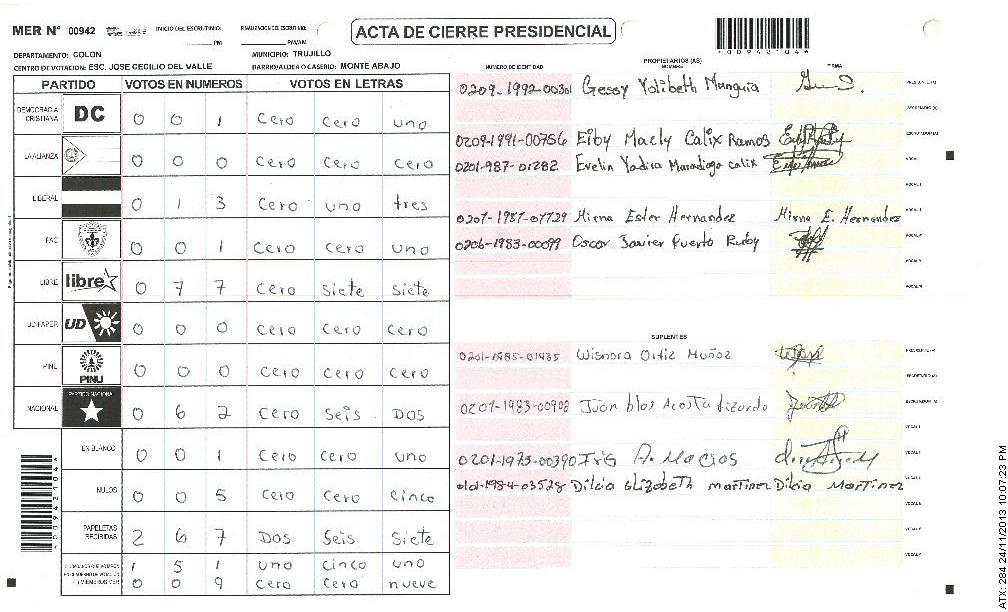 MER N° 00942 INICIO DEL ESCRUTINIO: PM FINALIZACION DEL ESCRUTINIO: PM/AM
ACTA DE CIERRE PRESIDENCIAL
*00942104*
DEPARTAMENTO: COLON MUNICIPIO: TRUJILLO
CENTRO DE VOTACION: ESC. JOSE CECILIO DEL VALLE BARRIO/ALDEA O CASERIO: MONTE ABAJO
PARTIDO VOTOS EN NUMEROS VOTOS EN LETRAS
DEMOCRACIA CRISTIANA DC 0 0 1 Cero Cero uno
LA ALIANZA 0 0 0 Cero Cero Cero
LIBERAL 0 1 3 Cero uno tres
PAC 0 0 1 Cero Cero uno
LIBRE libre 0 7 7 Cero Siete Siete
UD-FAPER UD 0 0 0 Cero Cero Cero
PINU PINU 0 0 0 Cero Cero Cero
NACIONAL PARTIDO NACIONAL 0 6 2 Cero Seis Dos
EN BLANCO 0 0 1 Cero Cero uno
NULOS 0 0 5 Cero Cero Cinco
PAPELETAS RECIBIDAS 2 6 7 Dos Seis Siete
1 5 1 uno Cinco uno
0 0 9 Cero Cero nueve
NUMERO DE IDENTIDAD PROPIETARIOS (AS) NOMBRE FIRMA
Gessy Yolibeth Munguia
0209-1991-00756 Elby Maely Calix Ramos
0201-987-01282 Evelin Yadira Maradiaga calix
0207-1987-07729 Mirna Ester Hernandez Mirna E. Hernandez
0206-1983-00099 Oscar Javier Puerto Ruby
SUPLENTES
0201-1985-01435 Wisnora Ortiz Muñoz
0207-1983-00908 Juan blas Acosta
0201-1975-00390 A. Macias
Dilcia Elizabeth martinez Dilcia Martinez
ATX: 284 24/11/2013 10:07:23 PM